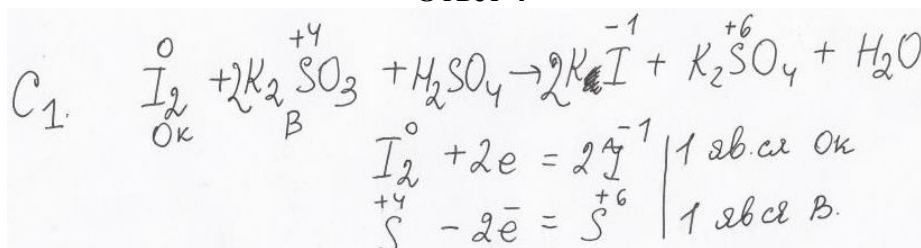 +4 -1 +6
C1. I₂⁰ + 2K₂SO₃ + H₂SO₄ → 2KI + K₂SO₄ + H₂O
Ок В
I₂⁰ + 2e = 2I⁻¹ | 1 яв.ся Ок
S⁺⁴ - 2ē = S⁺⁶ | 1 явся В.